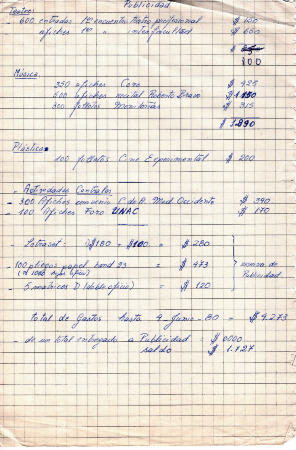 Publicidad
Teatro:
600 entradas 1er encuentro teatro profesional $
afiches 1er " interfacultad $ 600
$ 100
Música:
350 afiches Coro $ 425
500 afiches recital Roberto Bravo $ 1150
300 folletos $ 315
$ 1.890
Plástica:
100 folletos Cine Experimental $ 200
- Actividades Centrales
- 300 Afiches convenio C de A. Med. Occidente $ 390
- 100 Afiches Foro UNAC $ 170
- Letraset: $180 + $100 = $ 280
- 100 pliegos papel bond 23 = $ 473
- 5 matrices D (doble oficio) = $ 120
Publicidad
total de Gastos hasta 4 Junio - 80 - $ 4.273
- de un total entregado a Publicidad =
saldo $ 1.727